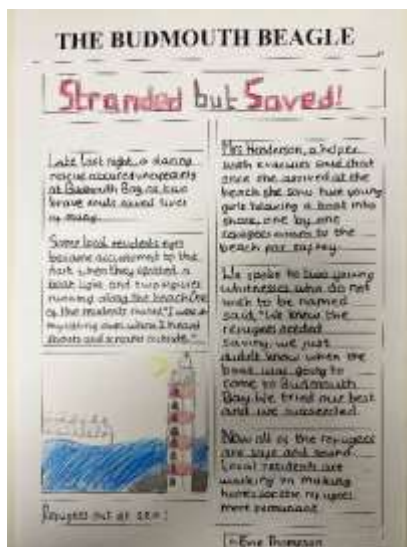 THE BUDMOUTH BEAGLE
Stranded but Saved!
Late last night, a daring
rescue occured unexpectedly
at Budmouth Bay as two
brave souls saved lives
of many.
Some local residents eyes
became accustomed to the
dark when they spotted a
boat light and two figures
running along the beach. One
of the residents shared, "I was in
my living room when I heard
shouts and screams outside."
Refugees out at sea!
Mrs Henderson, a helper
with evacuees said that
once she arrived at the
beach she saw two young
girls heaving a boat into
shore, one by one
refugees to the
beach for safety.
We spoke to two young
whitnesses who do not
wish to be named
said, "We knew the
refugees needed
saving, we just
didn't know when the
boat was going to
come to Budmouth
Bay. We tried our best
and we succeeded.
Now all of the refugees
are safe and sound.
Local residents are
working on making
homes for the refugees
more permanent.
Evie Thompson